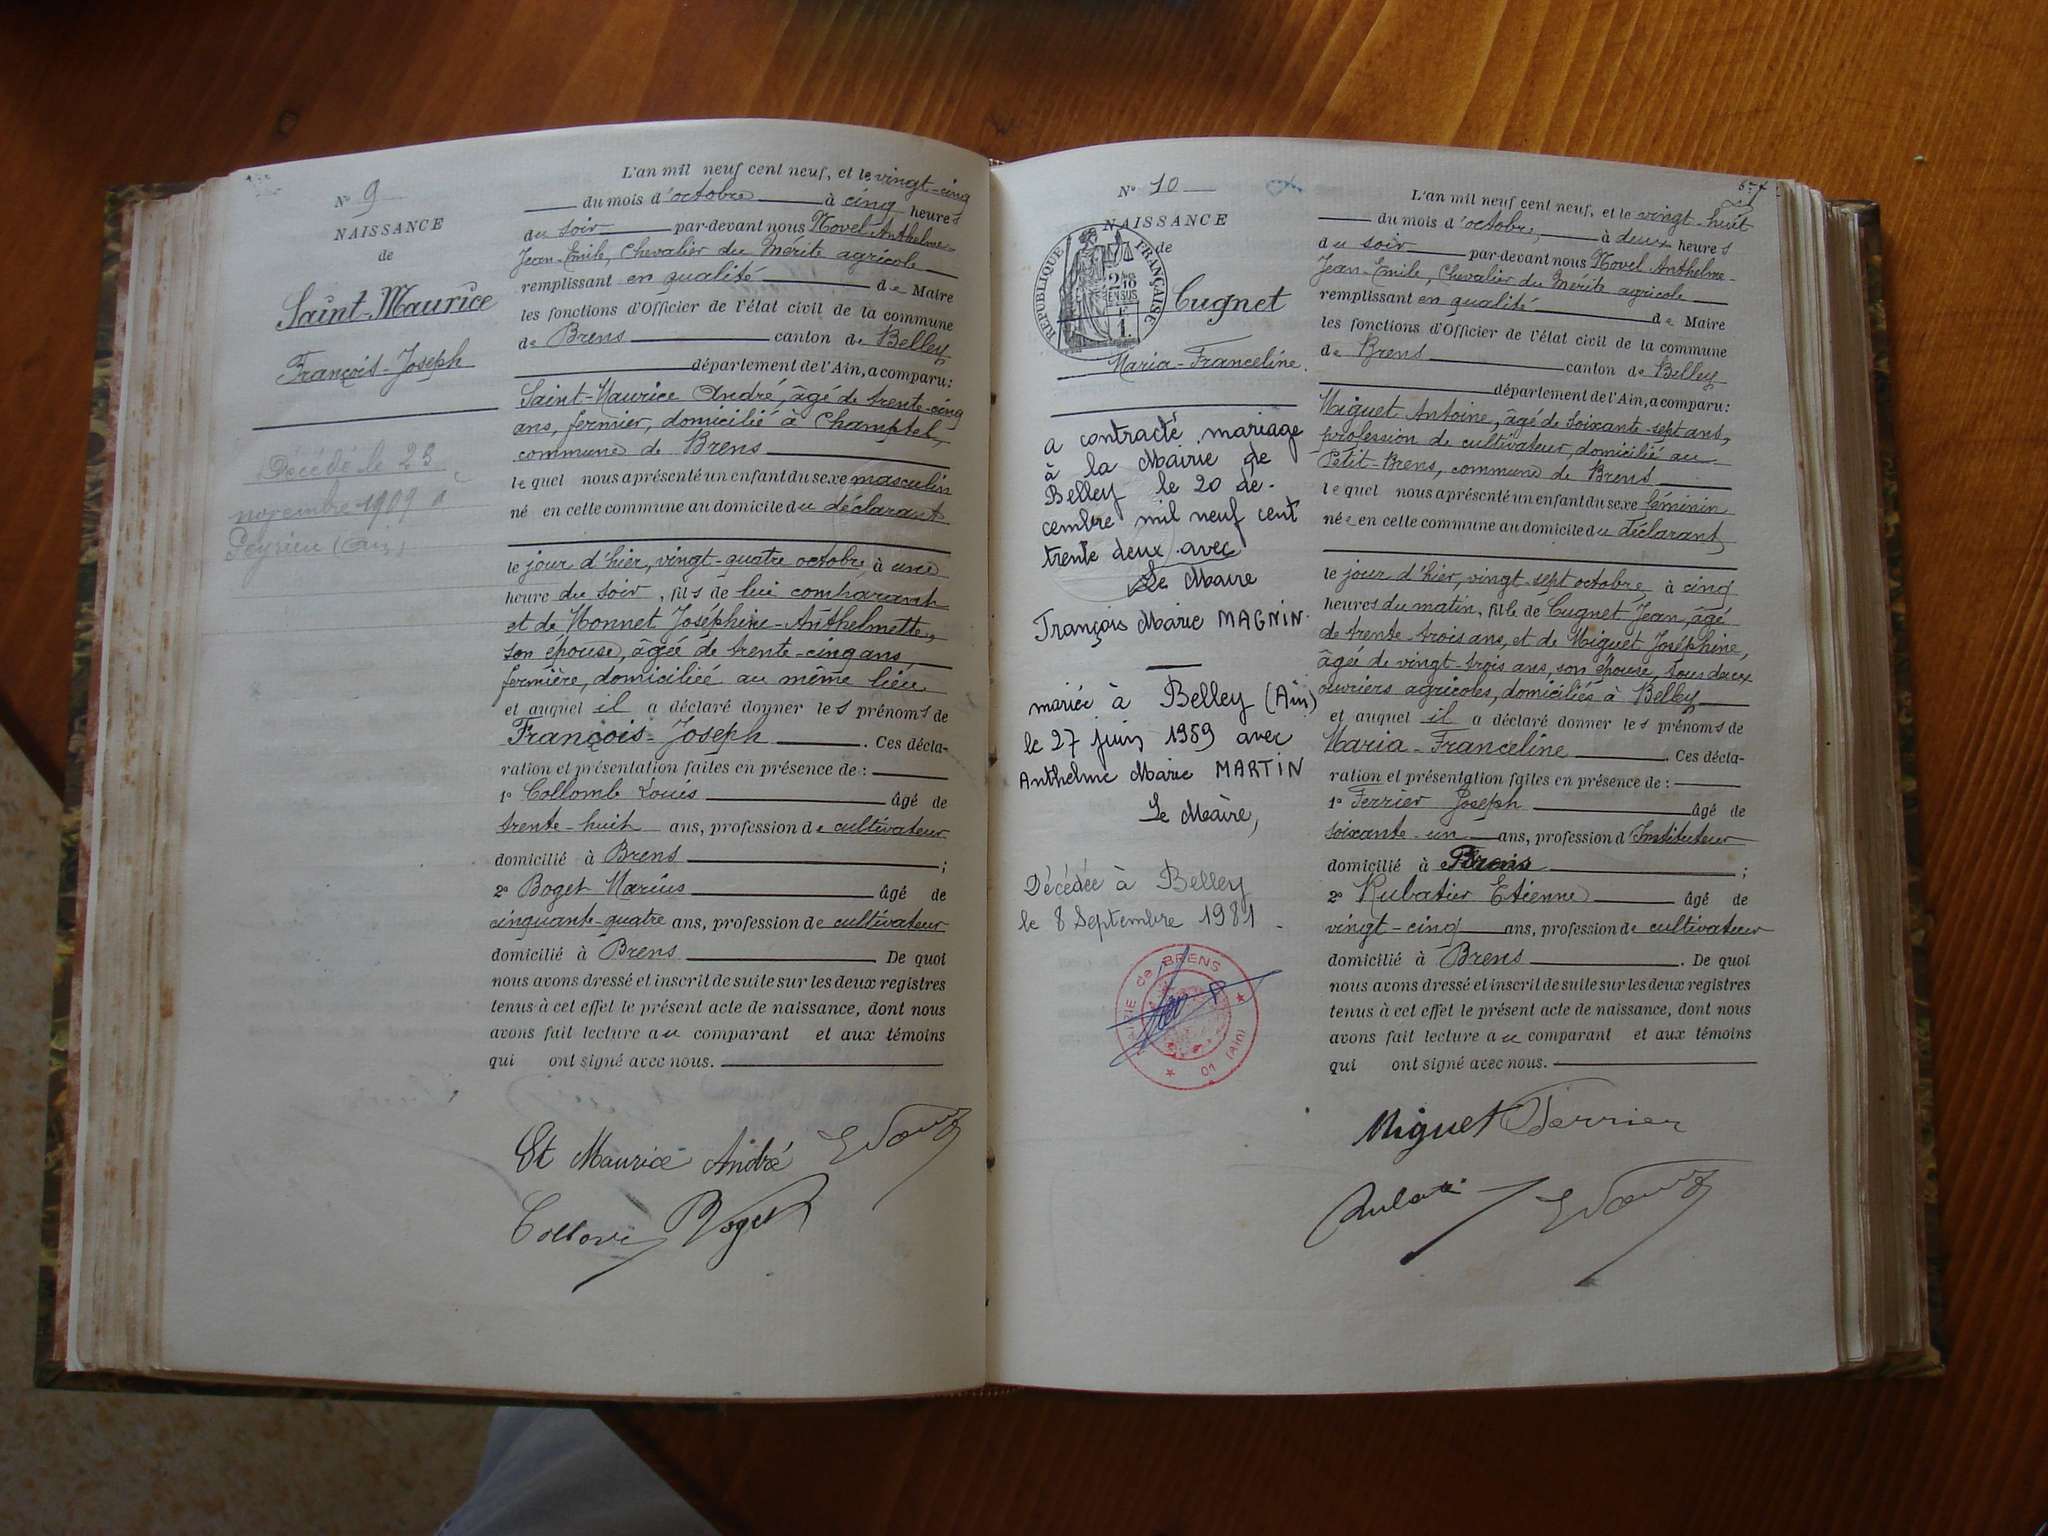 N° 9
NAISSANCE
de
Saint-Maurice
François-Joseph
Décédé le 23
novembre 1909 à
Peyrieu (Ain)
L'an mil neuf cent neuf, et le vingt-cinq
du mois d'octobre à cinq heures
du soir par-devant nous Novel Anthelme-
Jean-Emile, Chevalier du Mérite agricole
remplissant en qualité de Maire
les fonctions d'Officier de l'état civil de la commune
de Brens canton de Belley
département de l'Ain, a comparu:
Saint-Maurice André, âgé de trente-cinq
ans, fermier, domicilié à Champtel,
commune de Brens
lequel nous a présenté un enfant du sexe masculin
né en cette commune au domicile du déclarant
le jour d'hier, vingt-quatre octobre à une
heure du soir, fils de lui comparant
et de Monnet Joséphine-Anthelmette,
son épouse, âgée de trente-cinq ans,
fermière, domiciliée au même lieu
et auquel il a déclaré donner les prénoms de
François-Joseph. Ces décla-
ration et présentation faites en présence de :
1° Collomb Louis âgé de
trente-huit ans, profession de cultivateur
domicilié à Brens ;
2° Boget Marius âgé de
cinquante-quatre ans, profession de cultivateur
domicilié à Brens De quoi
nous avons dressé et inscrit de suite sur les deux registres
tenus à cet effet le présent acte de naissance, dont nous
avons fait lecture au comparant et aux témoins
qui ont signé avec nous.
St Maurice André
Boget
N° 10
NAISSANCE
de
RÉPUBLIQUE FRANÇAISE
2/10
EN SUS
Cugnet
Maria-Franceline.
a contracté mariage
à la Mairie de
Belley le 20 dé-
cembre mil neuf cent
trente deux avec
Le Maire
François Marie MAGNIN.
mariée à Belley (Ain)
le 27 juin 1959 avec
Anthelme Marie MARTIN
Le Maire,
Décédée à Belley
le 8 Septembre 1981.
MAIRIE de BRENS
01 (Ain)
L'an mil neuf cent neuf, et le vingt-huit
du mois d'octobre, à deux heures
du soir par-devant nous Novel Anthelme-
Jean-Emile, Chevalier du Mérite agricole
remplissant en qualité de Maire
les fonctions d'Officier de l'état civil de la commune
de Brens canton de Belley
département de l'Ain, a comparu:
Miguet Antoine, âgé de soixante-sept ans,
profession de cultivateur, domicilié au
Petit-Brens, commune de Brens
lequel nous a présenté un enfant du sexe féminin
née en cette commune au domicile du déclarant,
le jour d'hier, vingt-sept octobre à cinq
heures du matin, fille de Cugnet Jean, âgé
de trente-trois ans, et de Miguet Joséphine,
âgée de vingt-trois ans, son épouse, tous deux
ouvriers agricoles, domiciliés à Belley
et auquel il a déclaré donner les prénoms de
Maria-Franceline. Ces décla-
ration et présentation faites en présence de :
1° Ferrier Joseph âgé de
soixante-un ans, profession d'Instituteur
domicilié à Brens ;
2° Rubatier Etienne âgé de
vingt-cinq ans, profession de cultivateur
domicilié à Brens. De quoi
nous avons dressé et inscrit de suite sur les deux registres
tenus à cet effet le présent acte de naissance, dont nous
avons fait lecture au comparant et aux témoins
qui ont signé avec nous.
Miguet Ferrier